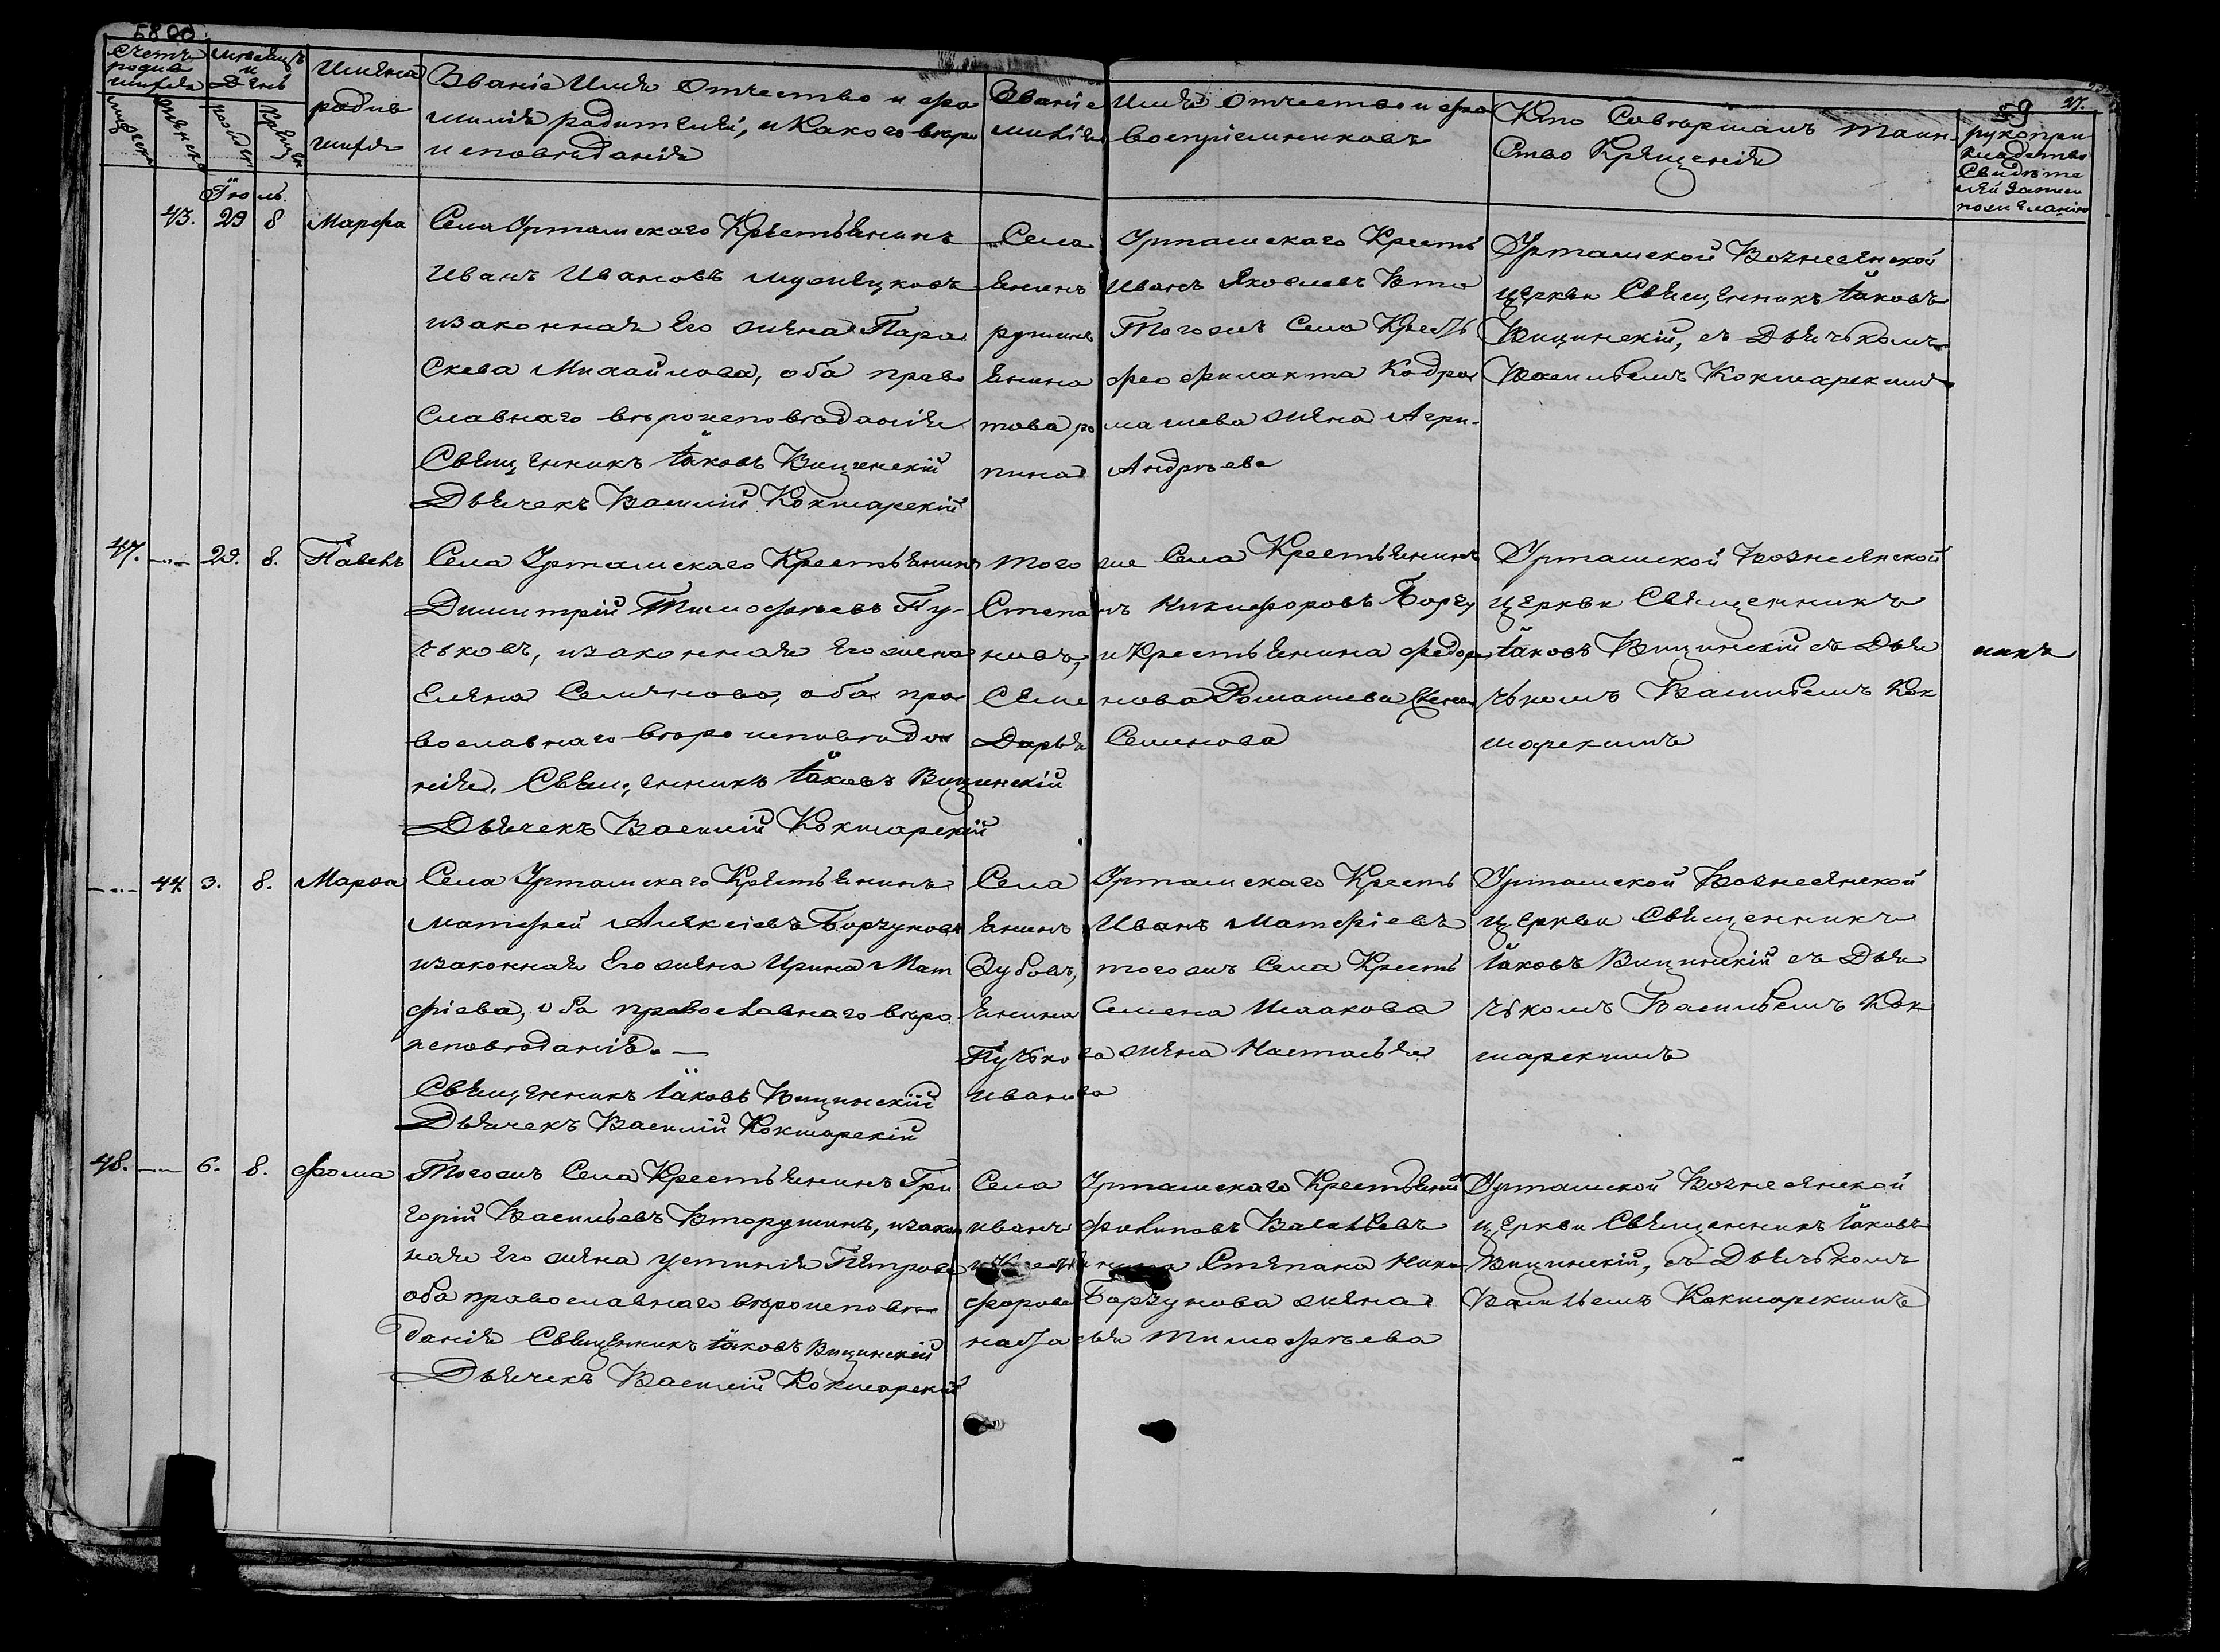 5800
59
27.
Счетъ родив шихся
мужеска
женска
Мѣсяцъ и День
рожден
Крещен
Имяна родив шихся
Званіе Имя Отчество и фа
милія родителей, и Какого вѣро
исповѣданія
Званіе Имя Отчество и фа
милія воспріемниковъ
Кто Совершалъ таин-
Ство Крещенія
рукопри
кладство
Свидѣте
лей записи
по желанію
Іюль.
43. 29 8 Марфа
Села Урташскаго Крестьянинъ
Иванъ Ивановъ
изаконная Его жена Пара
Скева Михайлова, оба право
Славнаго вѣроисповѣданія
Священникъ Іаковъ Вицинскій
Дьячекъ Василій Кокшарскій
Села Урташскаго Кресть
янинъ Иванъ Яковлевъ Вто
рушинъ Тогожъ Села Кресть
янина Феофилакта Кадра
това ро машева жена Агри-
пина Андрѣева
Урташской Вознесянской
церкви Священникъ Іаковъ
Вицинскій, съ Дьячькомъ
Васильемъ Кокшарскимъ
47. 29. 8. Павелъ
Села Урташскаго Крестьянинъ
Димитрій Тимофѣевъ Пу-
чьковъ, изаконная Его жена
Елена Семянова, оба пра
вославнаго вѣроисповѣда
нія. Священникъ Іаковъ Вицинскій
Дьячекъ Василій Кокшарскій
Того же Села Крестьянинъ
Степанъ Никифоровъ Борзу
новъ, и Крестьянина Федора
Семенова Ромашева жена
Дарья Семенова
Урташской Вознесянской
церкви Священникъ
Іаковъ Вицинскій съ Дья
чькомъ Васильемъ Кок
шарскимъ
44. 3. 8. Марѳа
Села Урташскаго Крестьянинъ
Матфей Алексіевъ Борзуновъ
изаконная Его жена Ирина Мат
фіева, оба православнаго вѣро
исповѣданія.
Священникъ Іаковъ Вицинскій
Дьячекъ Василій Кокшарскій
Села Урташскаго Кресть
янинъ Иванъ Матфіевъ
Зубовъ, тогожъ Села Кресть
янина Семена Исакова
Пучькова жена Настасья
иванова
Урташской Вознесянской
церкви Священникъ
Іаковъ Вицинскій съ Дья
чькомъ Васильемъ Кок
шарскимъ
48. 6. 8. Фома
Тогожъ Села Крестьянинъ Гри
горій Васильевъ Вторушинъ, изакон
ная Его жена устинія Петрова
оба православнаго вѣроисповѣ
данія Священникъ Іаковъ Вицинскій
Дьячекъ Василій Кокшарскій
Села Урташскаго Крестьянинъ
иванъ Филиповъ Васильевъ
Степана Ники
форова Борзунова жена
настасья Тимофѣева
Урташской Вознесянской
церкви Священникъ Іаковъ
Вицинскій, съ Дьячькомъ
Васильемъ Кокшарскимъ